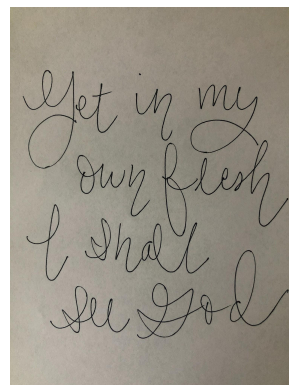 Yet in my
own flesh
I shall
see God